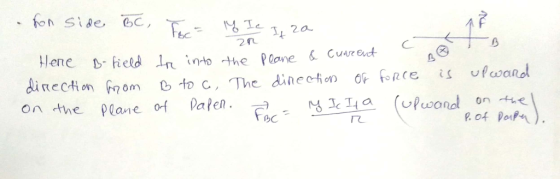 • For side BC, F_BC = μ₀ I_c / 2π I_t 2a
Here B-field In into the plane & current
direction from B to C, The direction of force is upward
on the plane of Paper. F_BC = μ₀ I_c I_t a / π (upward on the P. of Paper).
C B ⊗ F B